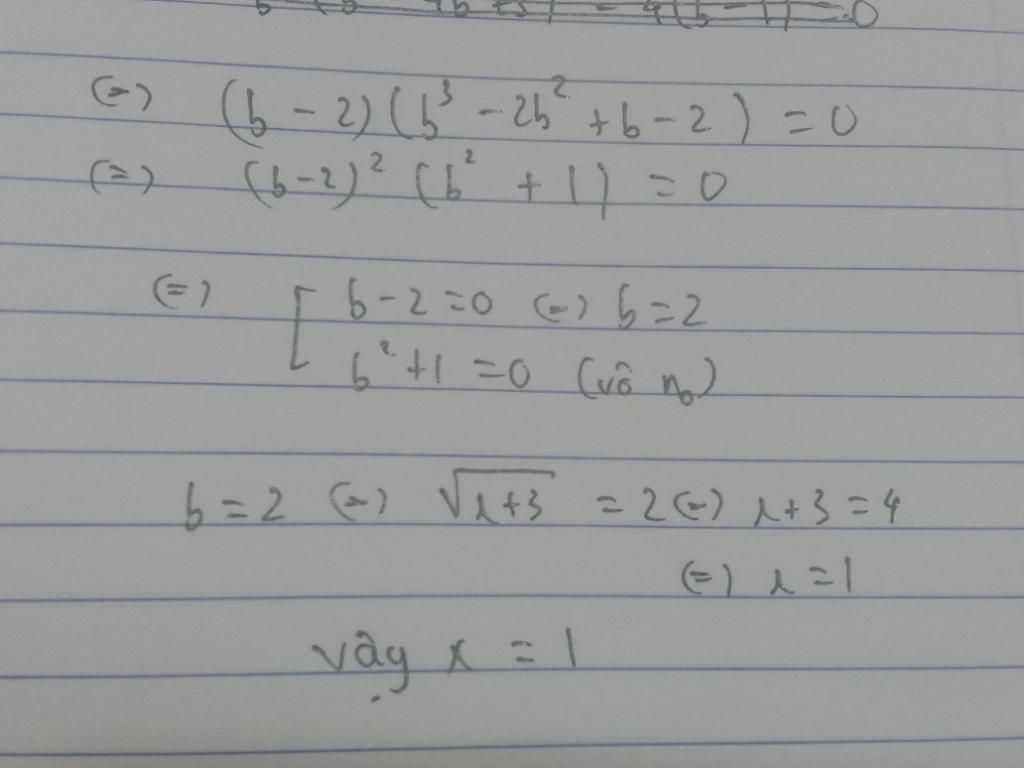 (=) (b - 2)(b³ - 2b² + b - 2) = 0
(=) (b-2)² (b² + 1) = 0
(=) [ b - 2 = 0 (=) b = 2
b² + 1 = 0 (vô n₀)
b = 2 (=) √x+3 = 2 (=) x+3 = 4
(=) x = 1
vậy x = 1